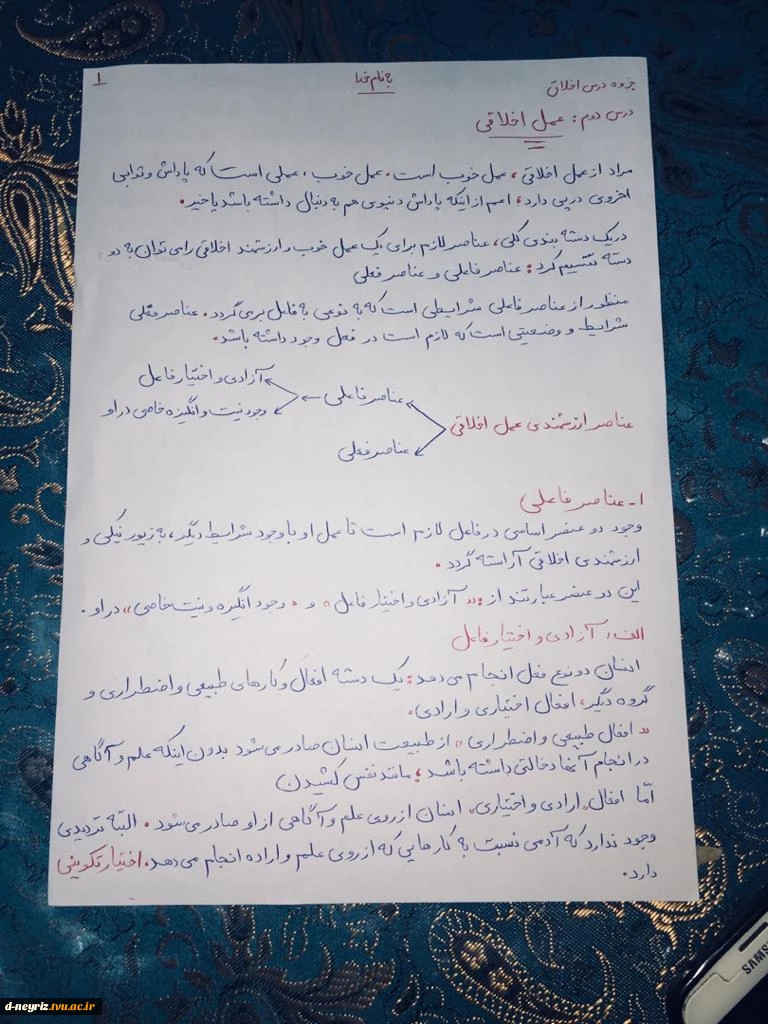 جزوه درس اخلاق
به نام خدا
۱
درس دوم: عمل اخلاقی
مراد از عمل اخلاقی، عمل خوب است. عمل خوب، عملی است که پاداش و ثوابی
اخروی در پی دارد؛ اعم از اینکه پاداش دنیوی هم به دنبال داشته باشد یا خیر.
در یک دسته بندی کلی، عناصر لازم برای یک عمل خوب و ارزشمند اخلاقی را می توان به دو
دسته تقسیم کرد: عناصر فاعلی و عناصر فعلی
منظور از عناصر فاعلی شرایطی است که به نوعی به فاعل برمی گردد. عناصر فعلی
شرایط و وضعیتی است که لازم است در فعل وجود داشته باشد.
عناصر ارزشمندی عمل اخلاقی
عناصر فاعلی
آزادی و اختیار فاعل
وجود نیت و انگیزه خاصی در او
عناصر فعلی
۱- عناصر فاعلی
وجود دو عنصر اساسی در فاعل لازم است تا عمل او با وجود شرایط دیگر، به زیور نیکی و
ارزشمندی اخلاقی آراسته گردد.
این دو عنصر عبارتند از: «آزادی و اختیار فاعل» و «وجود انگیزه و نیت خاصی» در او.
الف: آزادی و اختیار فاعل
انسان دو نوع فعل انجام می دهد: یک دسته افعال و کارهای طبیعی و اضطراری و
گروه دیگر، افعال اختیاری و ارادی.
«افعال طبیعی و اضطراری»، از طبیعت انسان صادر می شود بدون اینکه علم و آگاهی
در انجام آنها دخالتی داشته باشد؛ مانند نفس کشیدن
امّا افعال «ارادی و اختیاری» انسان از روی علم و آگاهی از او صادر می شود. البته تردیدی
وجود ندارد که آدمی نسبت به کارهایی که از روی علم و اراده انجام می دهد، اختیار تکوینی
دارد.
SAMSU
d-neyriz.tvu.ac.ir